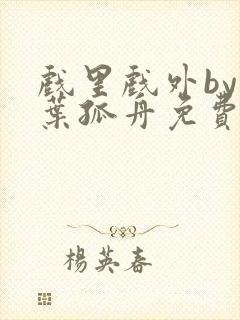 戲里戲外by
葉孤舟免費
楊英春